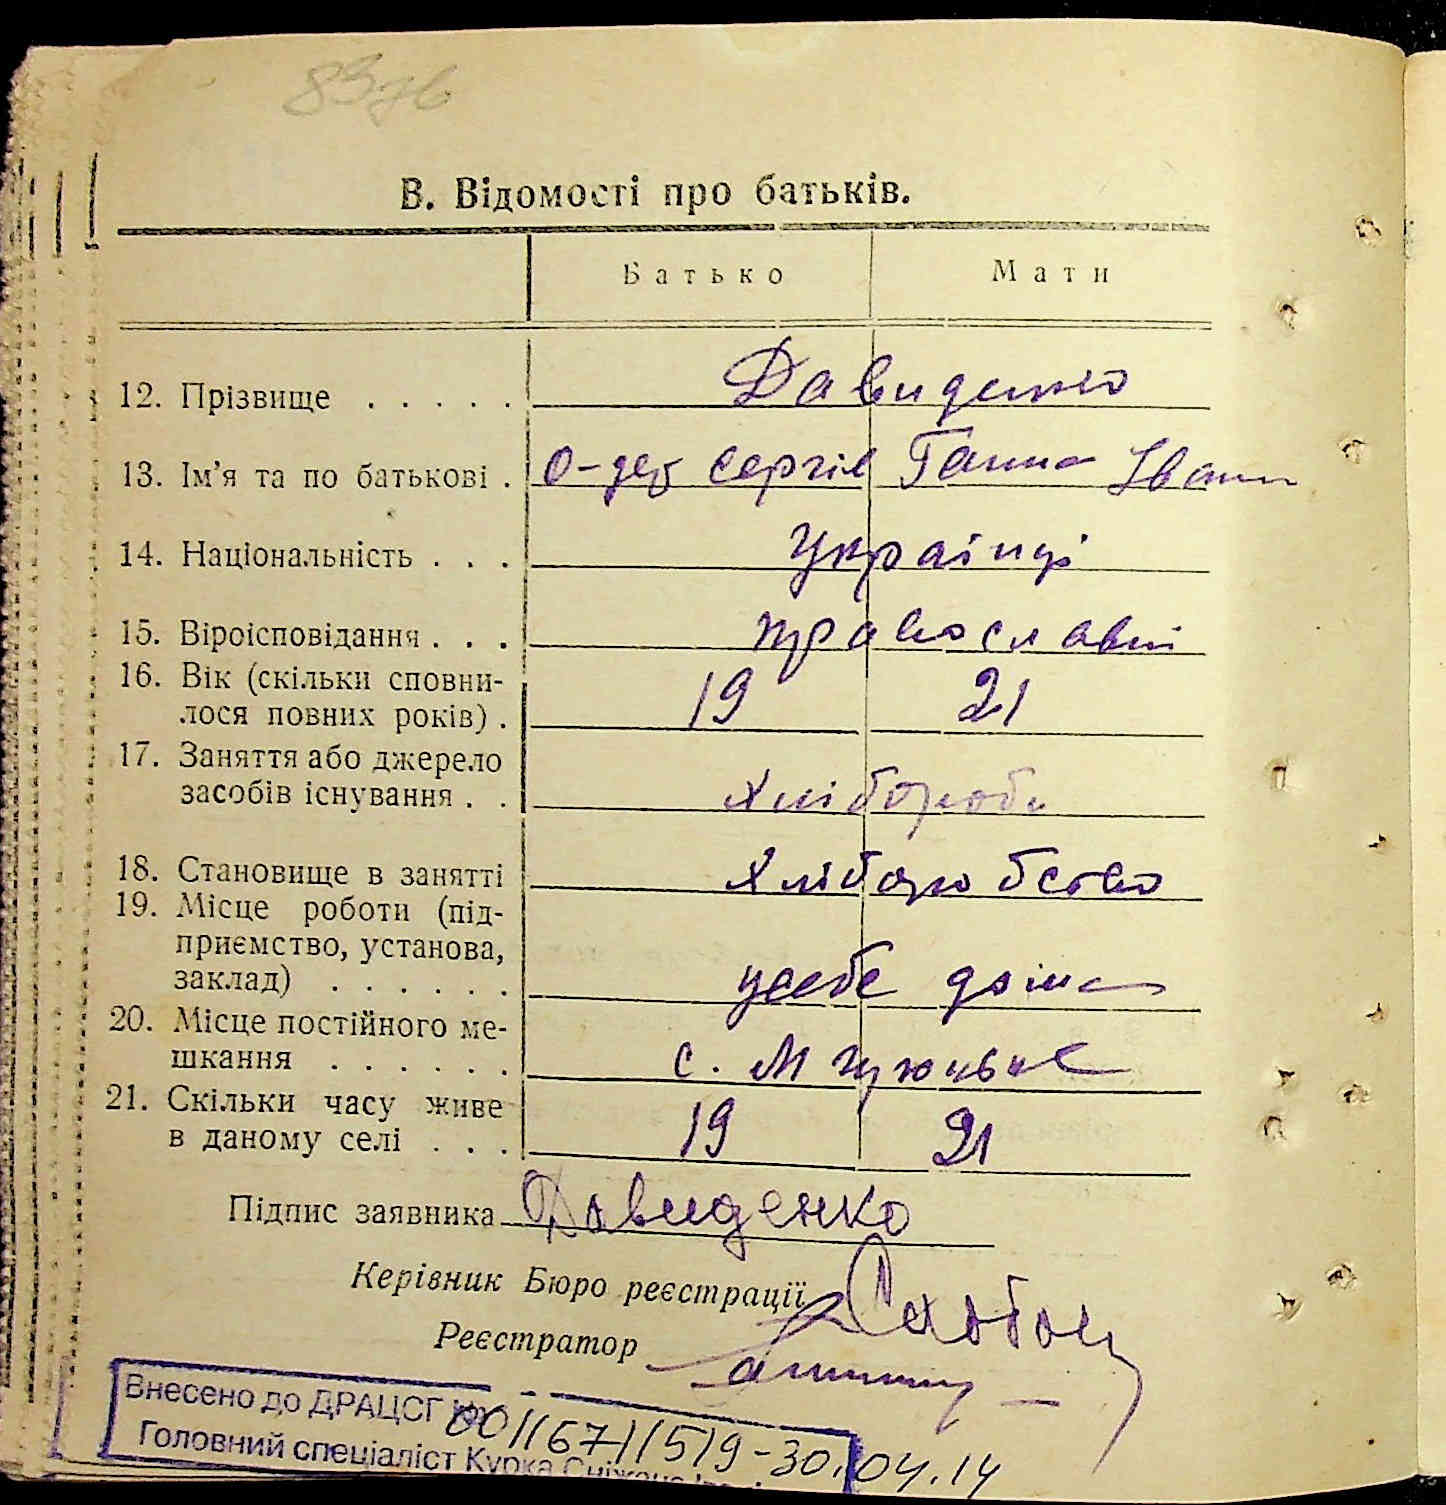 837в
В. Відомості про батьків.
Батько Мати
12. Прізвище . . . . . Давиденко
13. Ім'я та по батькові . Сергій Ганна Іван
14. Національність . . . Українці
15. Віроісповідання . . . православні
16. Вік (скільки сповни-
лося повних років) . 19 21
17. Заняття або джерело
засобів існування . . хлібороби
18. Становище в занятті хліборобство
19. Місце роботи (під-
приємство, установа,
заклад) . . . . . . усебе дома
20. Місце постійного ме-
шкання . . . . . . с.
21. Скільки часу живе
в даному селі . . . 19 21
Підпис заявника Давиденко
Керівник Бюро реєстрації
Реєстратор
Внесено до ДРАЦСГ 00116711519-30.04.14
Головний спеціаліст Курка Сніжана